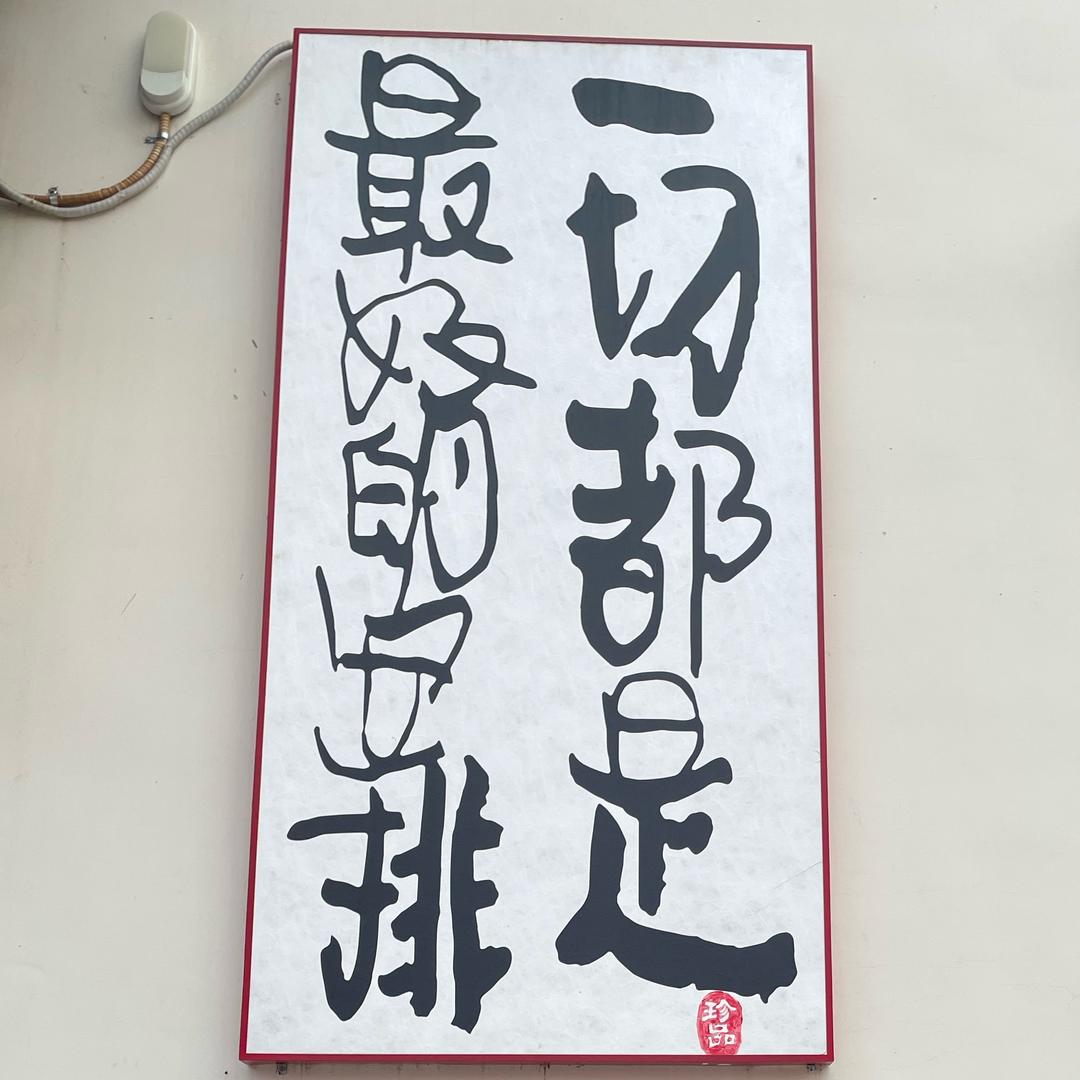 一切都是
最好的安排
珍品